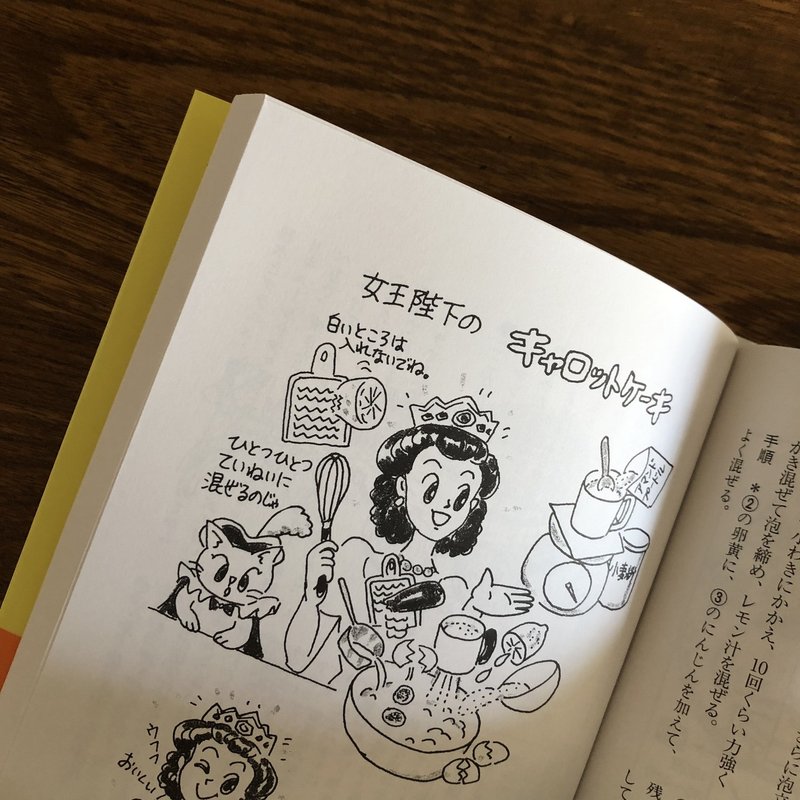 女王陛下の
キャロットケーキ
白いところは
入れないでね。
ひとつひとつ
ていねいに
混ぜるのじゃ
小麦粉
ウフフ
おいしい
小わきにかかえ、
がき混ぜて泡を締め、レモン汁を混ぜる。
10回くらい力強く
手順 *②の卵黄に、③のにんじんを加えて、
よく混ぜる。